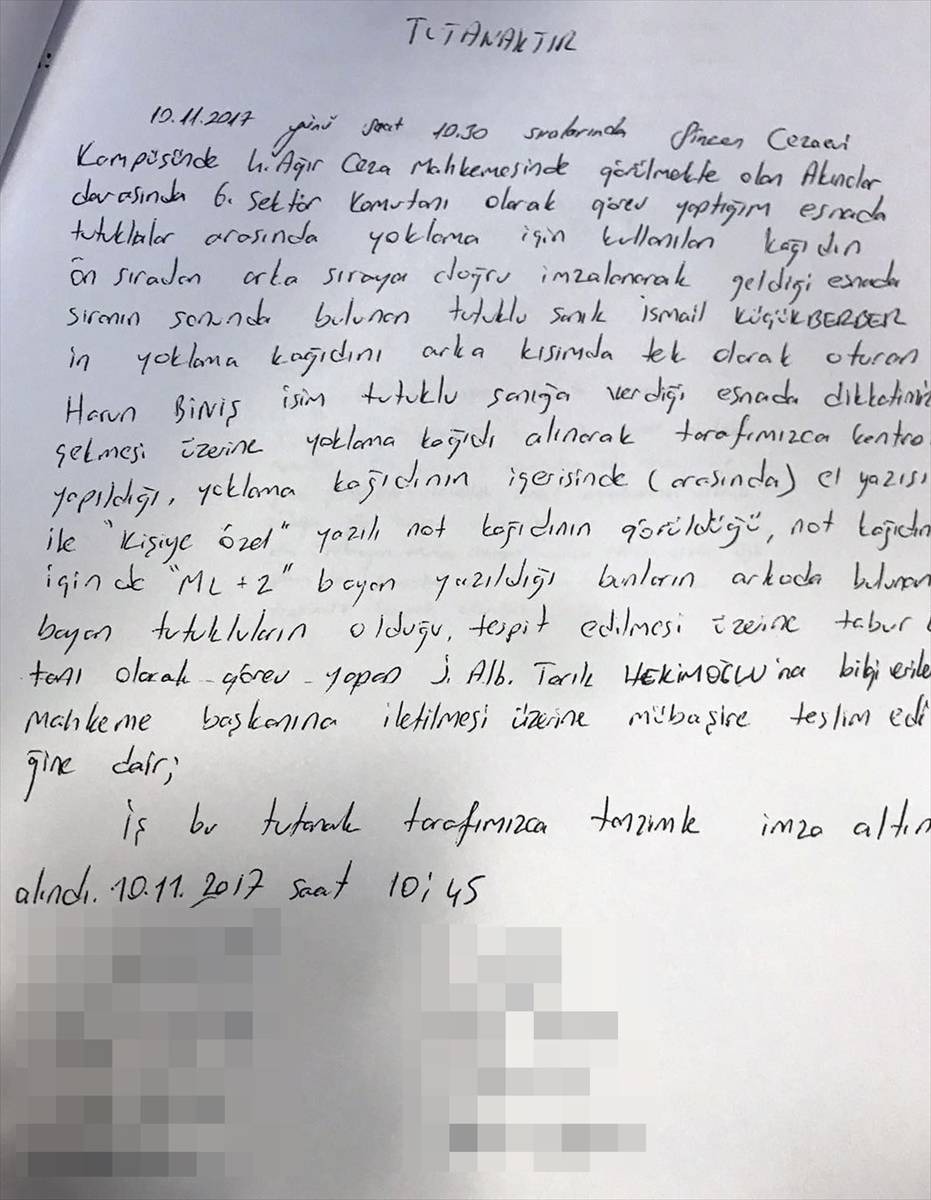 TUTANAKTIR
10.11.2017 günü saat 10.30 sıralarında Sincan Cezaevi
Kampüsünde 4. Ağır Ceza Mahkemesinde görülmekte olan Akıncılar
davasında 6. Sektör Komutanı olarak görev yaptığım esnada
tutuklular arasında yoklama için kullanılan kağıdın
ön sıradan arka sıraya doğru imzalanarak geldiği esnada
sıranın sonunda bulunan tutuklu sanık ismail KÜÇÜKBERBER
in yoklama kağıdını arka kısımda tek olarak oturan
Harun BİNİŞ isim tutuklu sanığa verdiği esnada dikkatimiz
çekmesi üzerine yoklama kağıdı alınarak tarafımızca kontro
yapıldığı, yoklama kağıdının içerisinde (arasında) el yazısı
ile "Kişiye özel" yazılı not kağıdının görüldüğü, not kağıdın
içinde "ML + 2" bayan yazıldığı bunların arkada bulunan
bayan tutukluların olduğu, tespit edilmesi üzerine tabur
tanı olarak görev yapan J. Alb. Tarık HEKİMOĞLU'na bilgi verile
Mahkeme başkanına iletilmesi üzerine mübaşire teslim edi
ğine dair;
İş bu tutanak tarafımızca tanzimle imza altın
alındı. 10.11.2017 saat 10:45